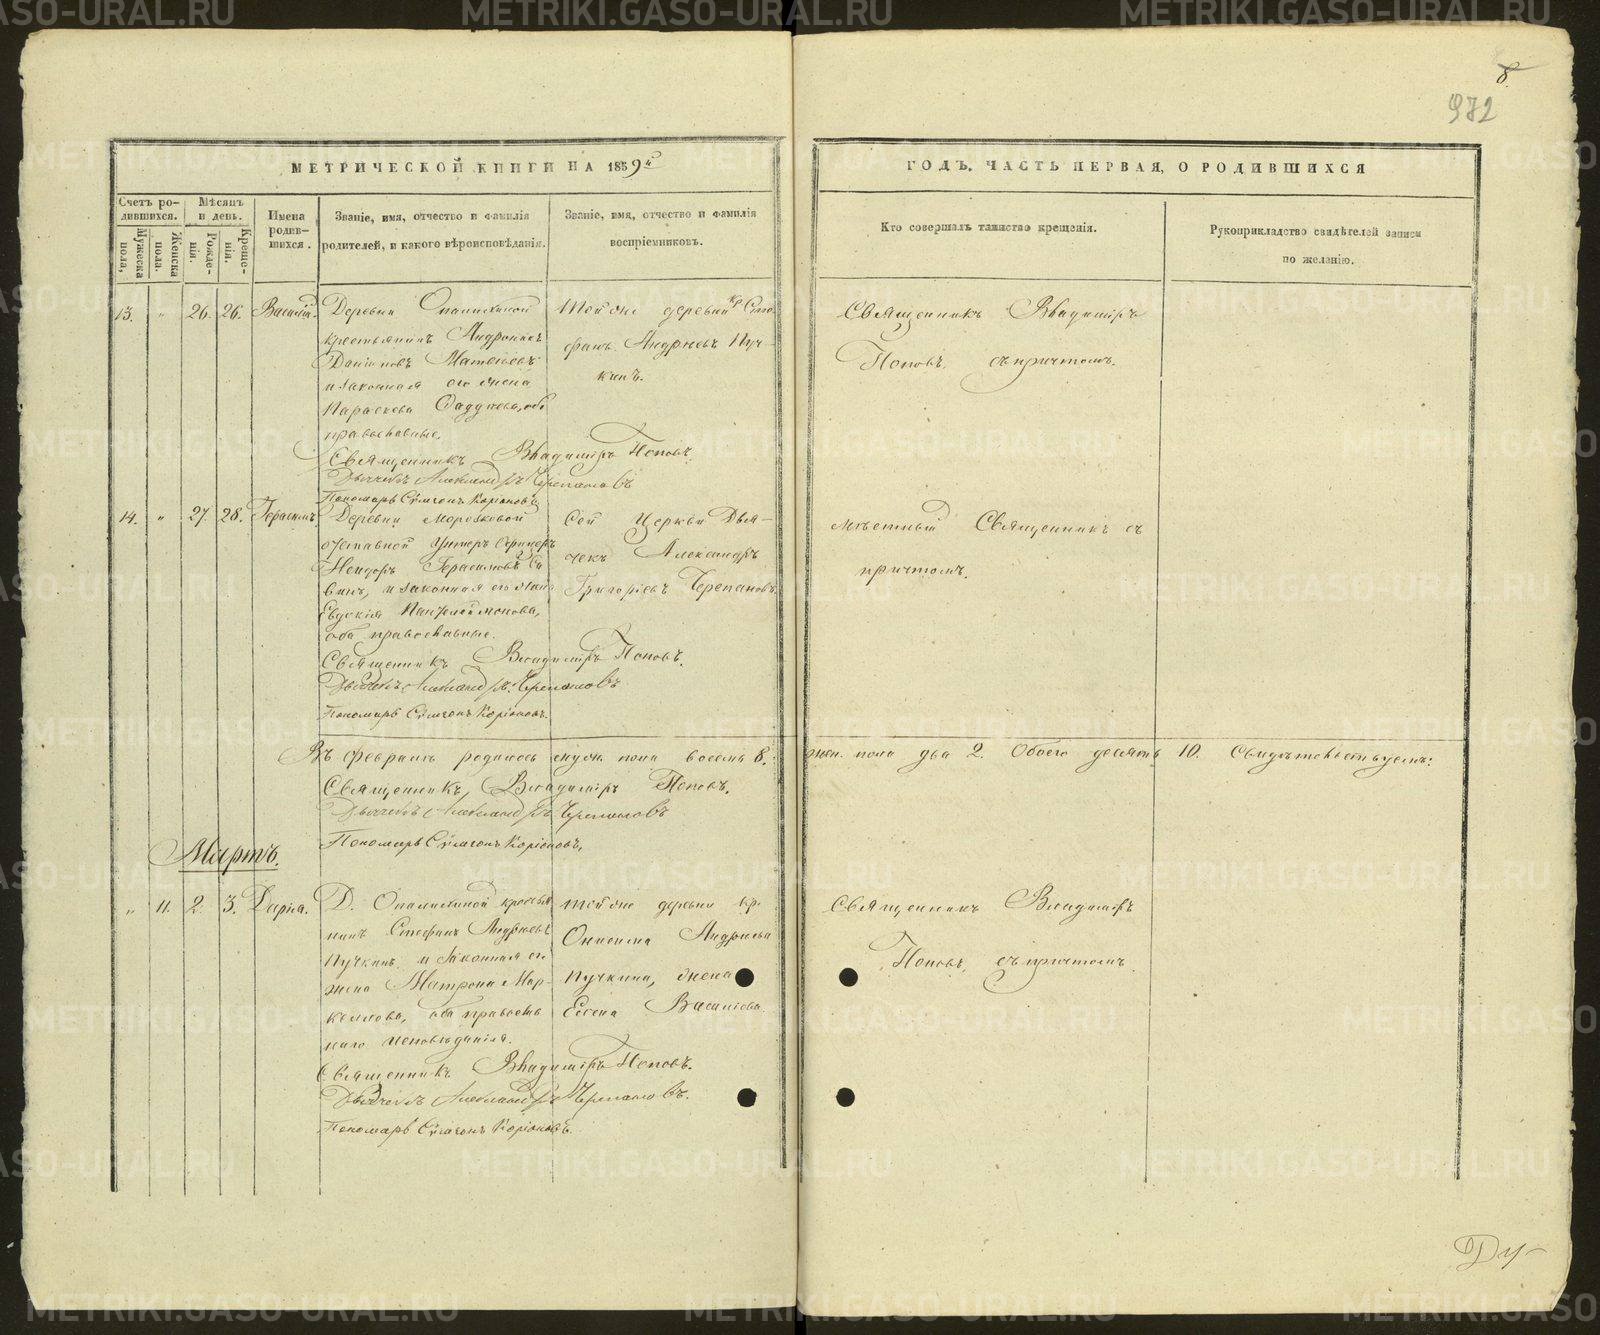 8
972
МЕТРИЧЕСКОЙ КНИГИ НА 1859й
ГОДЪ. ЧАСТЬ ПЕРВАЯ, О РОДИВШИХСЯ
Счетъ ро-
дившихся.
Мужеска
пола,
Женска
пола.
Мѣсяцъ
и день.
Рожде-
нія.
Креще-
нія.
Имена
родив-
шихся.
Званіе, имя, отчество и фамилія
родителей, и какого вѣроисповѣданія.
Званіе, имя, отчество и фамилія
воспріемниковъ.
Кто совершалъ таинство крещенія.
Рукоприкладство свидѣтелей записи
по желанію.
13. " 26. 26. Василій.
Деревни
крестьянинъ
Матвѣевъ
и законная его жена
Параскева Фаддѣева, оба
православные.
Священникъ Владиміръ Поповъ
Дьячекъ Александръ Черепановъ
Пономарь Сѵмеонъ Коріоновъ
Той же деревни кр. Сте-
фанъ Андреевъ Пуч-
кинъ.
Священникъ Владиміръ
Поповъ съ причтомъ.
14. " 27. 28. Герасимъ.
Деревни Морозковой
отставной Унтеръ Офицеръ
Герасимовъ Са
винъ, и законная его жена
Евдокія Пантелеймонова,
оба православные.
Священникъ Владиміръ Поповъ.
Дьячекъ Александръ Черепановъ
Пономарь Сѵмеонъ Коріоновъ.
Сей Церкви Дья-
чекъ Александръ
Григорьевъ Черепановъ
мѣстный Священникъ съ
причтомъ.
Въ февралѣ родилось муж. пола восемь 8. жен. пола два 2. Обоего десять 10. Свидѣтельствуемъ:
Священникъ Владиміръ Поповъ.
Дьячекъ Александръ Черепановъ
Пономарь Сѵмеонъ Коріоновъ.
Мартъ.
" 11. 2. 3. Дарія.
Д. крестья
нинъ Стефанъ Андреевъ
Пучкинъ и законная его
жена Матрона Мар-
келлова, оба правосла
внаго исповѣданія.
Священникъ Владиміръ Поповъ.
Дьячекъ Александръ Черепановъ.
Пономарь Сѵмеонъ Коріоновъ.
Той же деревни кр.
Онисима Андреева
Пучкина, жена
Елена Васильева.
Священникъ Владиміръ
Поповъ, съ причтомъ.
METRIKI.GASO-URAL.RU